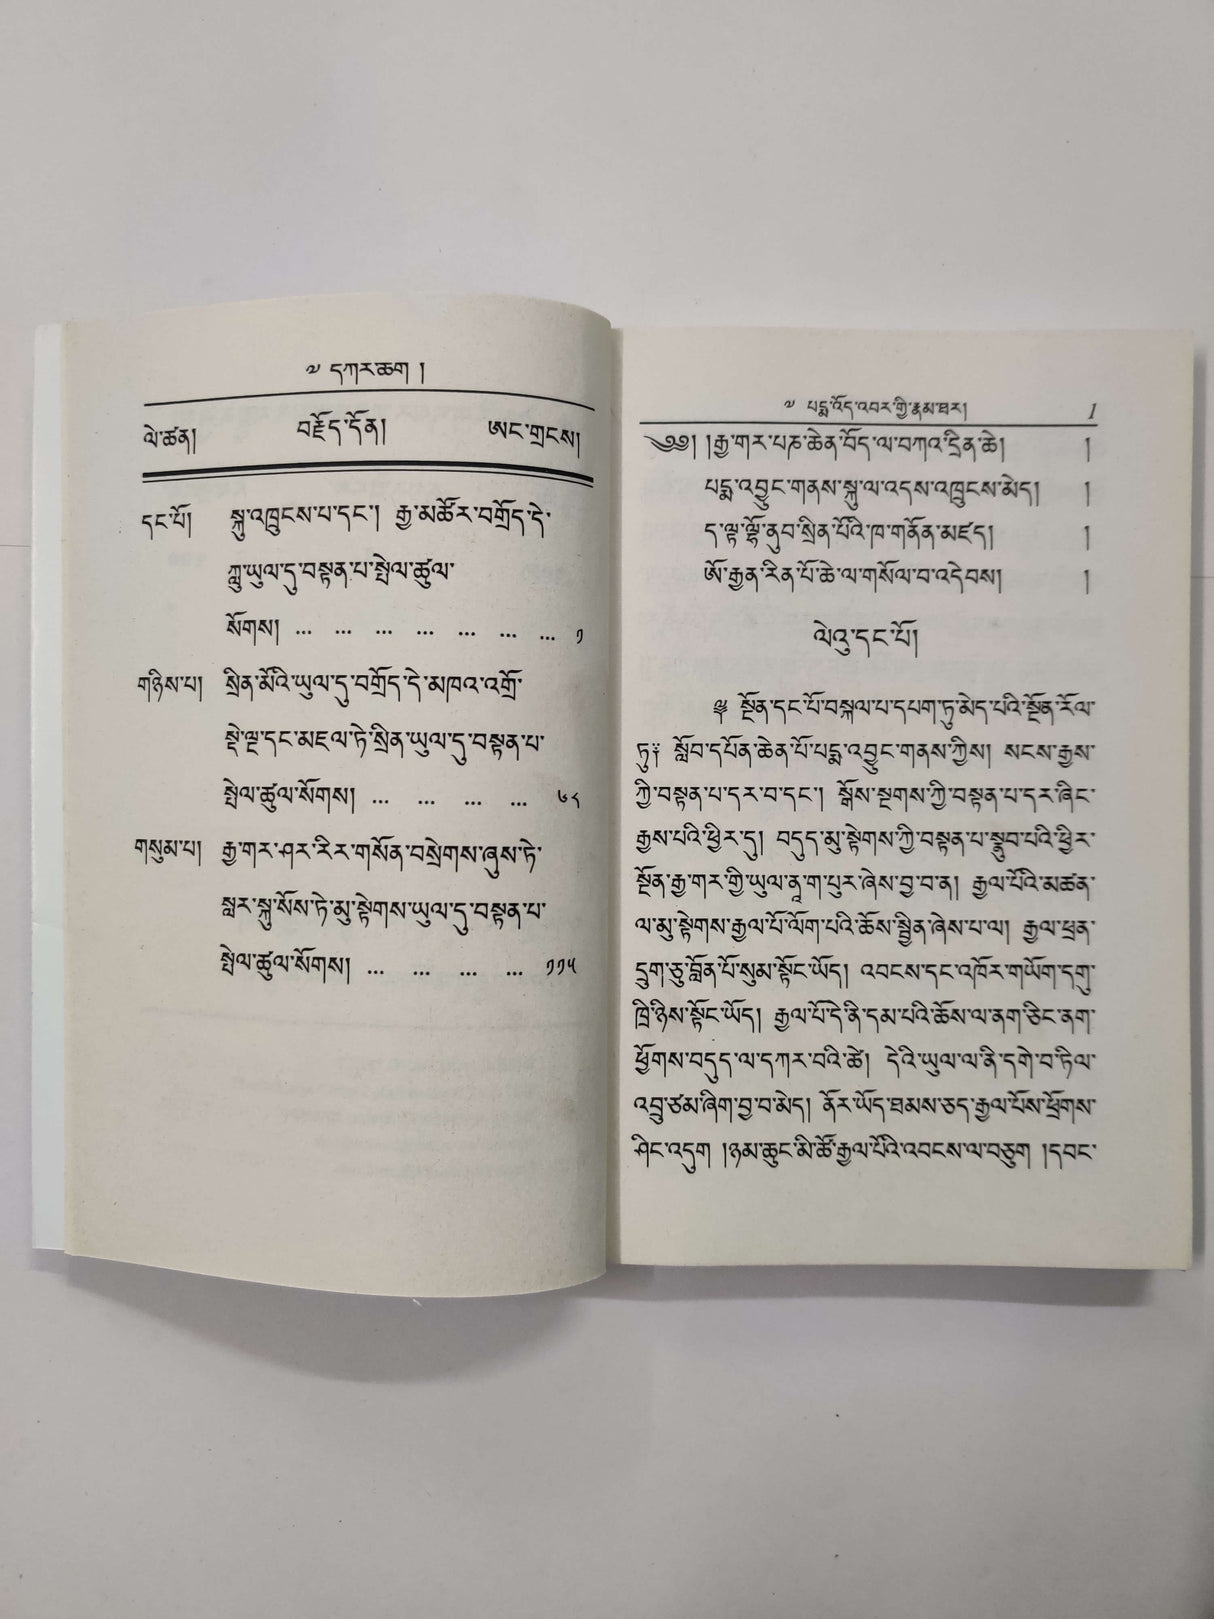 ༧ དཀར་ཆག །
ལེ་ཚན། བརྗོད་དོན། ཨང་གྲངས།
དང་པོ། སྐུ་འཁྲུངས་པ་དང་། རྒྱ་མཚོར་བགྲོད་དེ་
ཀླུ་ཡུལ་དུ་བསྟན་པ་སྤེལ་ཚུལ་
སོགས། ... ... ... ... ... ... ... ༡
གཉིས་པ། སྲིན་མོའི་ཡུལ་དུ་བགྲོད་དེ་མཁའ་འགྲོ་
སྡེ་ལྔ་དང་མཇལ་ཏེ་སྲིན་ཡུལ་དུ་བསྟན་པ་
སྤེལ་ཚུལ་སོགས། ... ... ... ... ༦༨
གསུམ་པ། རྒྱ་གར་ཤར་རིར་གསོན་བསྲེགས་ཞུས་ཏེ་
སླར་སྐུ་སོས་ཏེ་མུ་སྟེགས་ཡུལ་དུ་བསྟན་པ་
སྤེལ་ཚུལ་སོགས། ... ... ... ... ༡༡༥
༧ པདྨ་འོད་འབར་གྱི་རྣམ་ཐར། 1
༄༅། །རྒྱ་གར་པཎ་ཆེན་བོད་ལ་བཀའ་དྲིན་ཆེ། །
པདྨ་འབྱུང་གནས་སྐུ་ལ་འདས་འཁྲུངས་མེད། །
ད་ལྟ་ལྷོ་ནུབ་སྲིན་པོའི་ཁ་གནོན་མཛད། །
ཨོ་རྒྱན་རིན་པོ་ཆེ་ལ་གསོལ་བ་འདེབས། །
ལེའུ་དང་པོ།
༈ སྔོན་དང་པོ་བསྐལ་པ་དཔག་ཏུ་མེད་པའི་སྔོན་རོལ་
ཏུ༑ སློབ་དཔོན་ཆེན་པོ་པདྨ་འབྱུང་གནས་ཀྱིས། སངས་རྒྱས་
ཀྱི་བསྟན་པ་དར་བ་དང་། སྒོས་སྔགས་ཀྱི་བསྟན་པ་དར་ཞིང་
རྒྱས་པའི་ཕྱིར་དུ། བདུད་མུ་སྟེགས་ཀྱི་བསྟན་པ་སྣུབ་པའི་ཕྱིར་
སྔོན་རྒྱ་གར་གྱི་ཡུལ་ནཱ་ག་པུར་ཞེས་བྱ་བ་ན། རྒྱལ་པོའི་མཚན་
ལ་མུ་སྟེགས་རྒྱལ་པོ་ལོག་པའི་ཆོས་སྦྱིན་ཞེས་པ་ལ། རྒྱལ་ཕྲན་
དྲུག་ཅུ་བློན་པོ་སུམ་སྟོང་ཡོད། འབངས་དང་འཁོར་གཡོག་དགུ་
ཁྲི་ཉིས་སྟོང་ཡོད། རྒྱལ་པོ་དེ་ནི་དམ་པའི་ཆོས་ལ་ནག་ཅིང་ནག་
ཕྱོགས་བདུད་ལ་དཀར་བའི་ཚེ། དེའི་ཡུལ་ལ་ནི་དགེ་བ་ཏིལ་
འབྲུ་ཙམ་ཞིག་བྱ་བ་མེད། ནོར་ཡོད་ཐམས་ཅད་རྒྱལ་པོས་ཕྲོགས་
ཤིང་འདུག །ཉམ་ཆུང་མི་ཚོ་རྒྱལ་པོའི་འབངས་ལ་བཅུག །དབང་